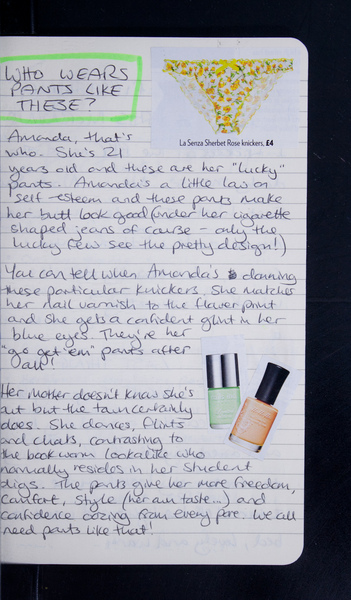 WHO WEARS
PANTS LIKE
THESE?
La Senza Sherbet Rose knickers, £4
Amanda, that's
who. She's 21
years old and these are her "lucky"
pants. Amanda's a little low on
self-esteem and these pants make
her butt look good (under her cigarette
shaped jeans of course - only the
lucky few see the pretty design!)
You can tell when Amanda's donning
these particular knickers. She matches
her nail varnish to the flower print
and she gets a confident glint in her
blue eyes. They're her
"go get 'em" pants after
all!
Her mother doesn't know she's
out but the town certainly
does. She dances, flirts
and chats, contrasting to
the bookworm lookalike who
normally resides in her student
digs. The pants give her more freedom,
comfort, style (her own taste...) and
confidence oozing from every pore. We all
need pants like that!